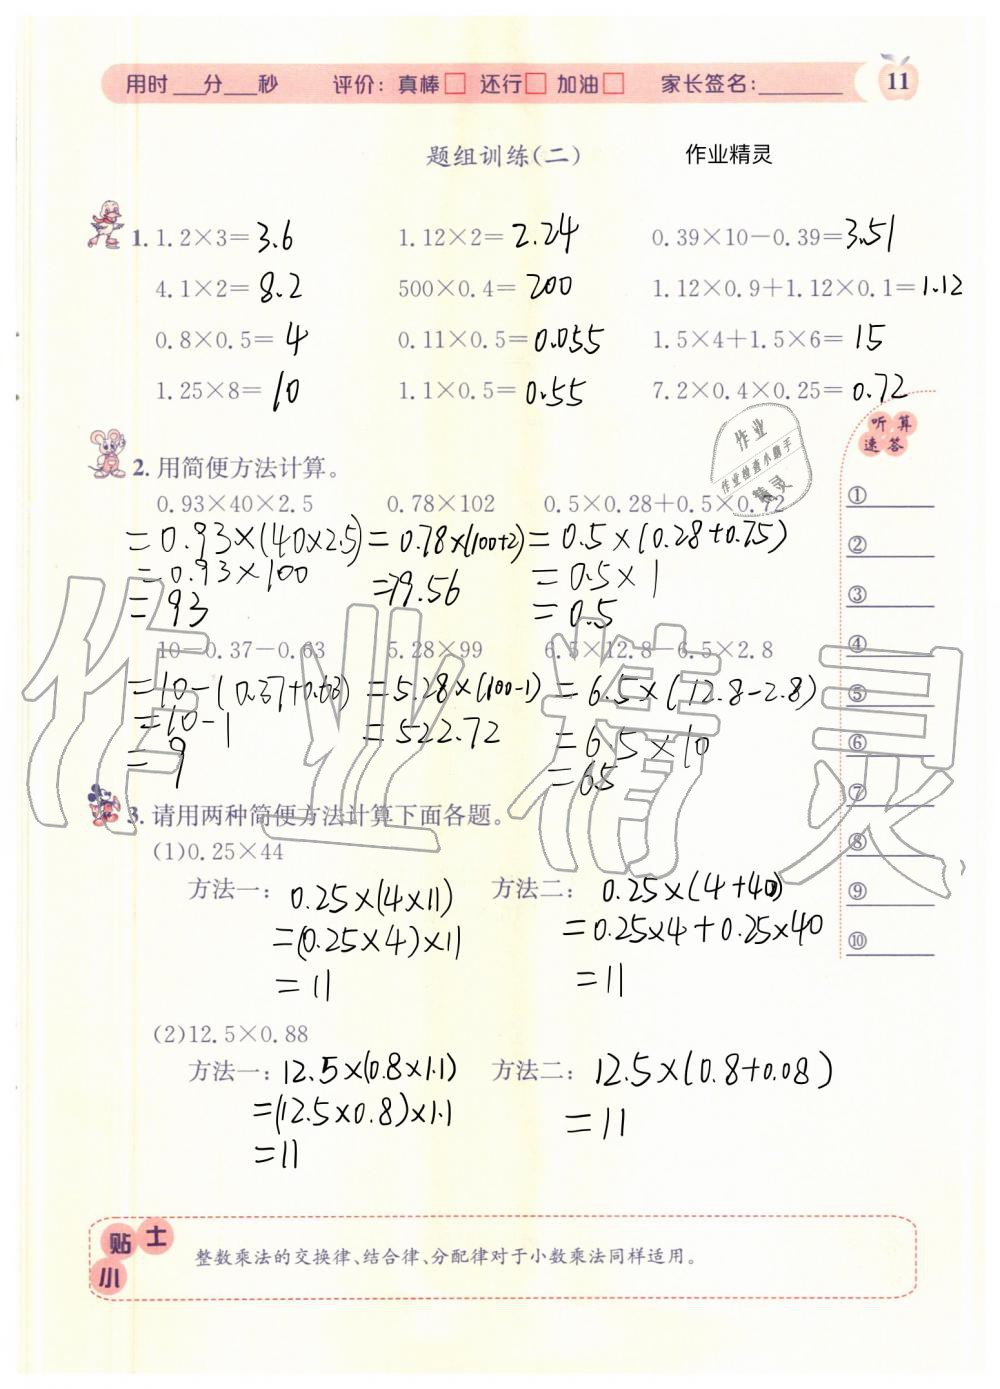 用时___分___秒 评价：真棒□ 还行□ 加油□ 家长签名：________ 11
题组训练(二) 作业精灵
1. 1.2×3= 3.6 1.12×2= 2.24 0.39×10-0.39= 3.51
4.1×2= 8.2 500×0.4= 200 1.12×0.9+1.12×0.1= 1.12
0.8×0.5= 4 0.11×0.5= 0.055 1.5×4+1.5×6= 15
1.25×8= 10 1.1×0.5= 0.55 7.2×0.4×0.25= 0.72
听算
速答
作业
作业检查小助手
精灵
2. 用简便方法计算。
0.93×40×2.5 0.78×102 0.5×0.28+0.5×0.72
=0.93×(40×2.5) =0.78×(100+2) =0.5×(0.28+0.75)
=0.93×100 =79.56 =0.5×1
=93 =0.5
10-0.37-0.63 5.28×99 6.5×12.8-6.5×2.8
=10-(0.37+0.63) =5.28×(100-1) =6.5×(12.8-2.8)
=10-1 =522.72 =6.5×10
=9 =65
3. 请用两种简便方法计算下面各题。
(1)0.25×44
方法一：0.25×(4×11) 方法二：0.25×(4+40)
=(0.25×4)×11 =0.25×4+0.25×40
=11 =11
(2)12.5×0.88
方法一：12.5×(0.8×1.1) 方法二：12.5×(0.8+0.08)
=(12.5×0.8)×1.1 =11
=11
①
②
③
④
⑤
⑥
⑦
⑧
⑨
⑩
小贴士
整数乘法的交换律、结合律、分配律对于小数乘法同样适用。
作业精灵